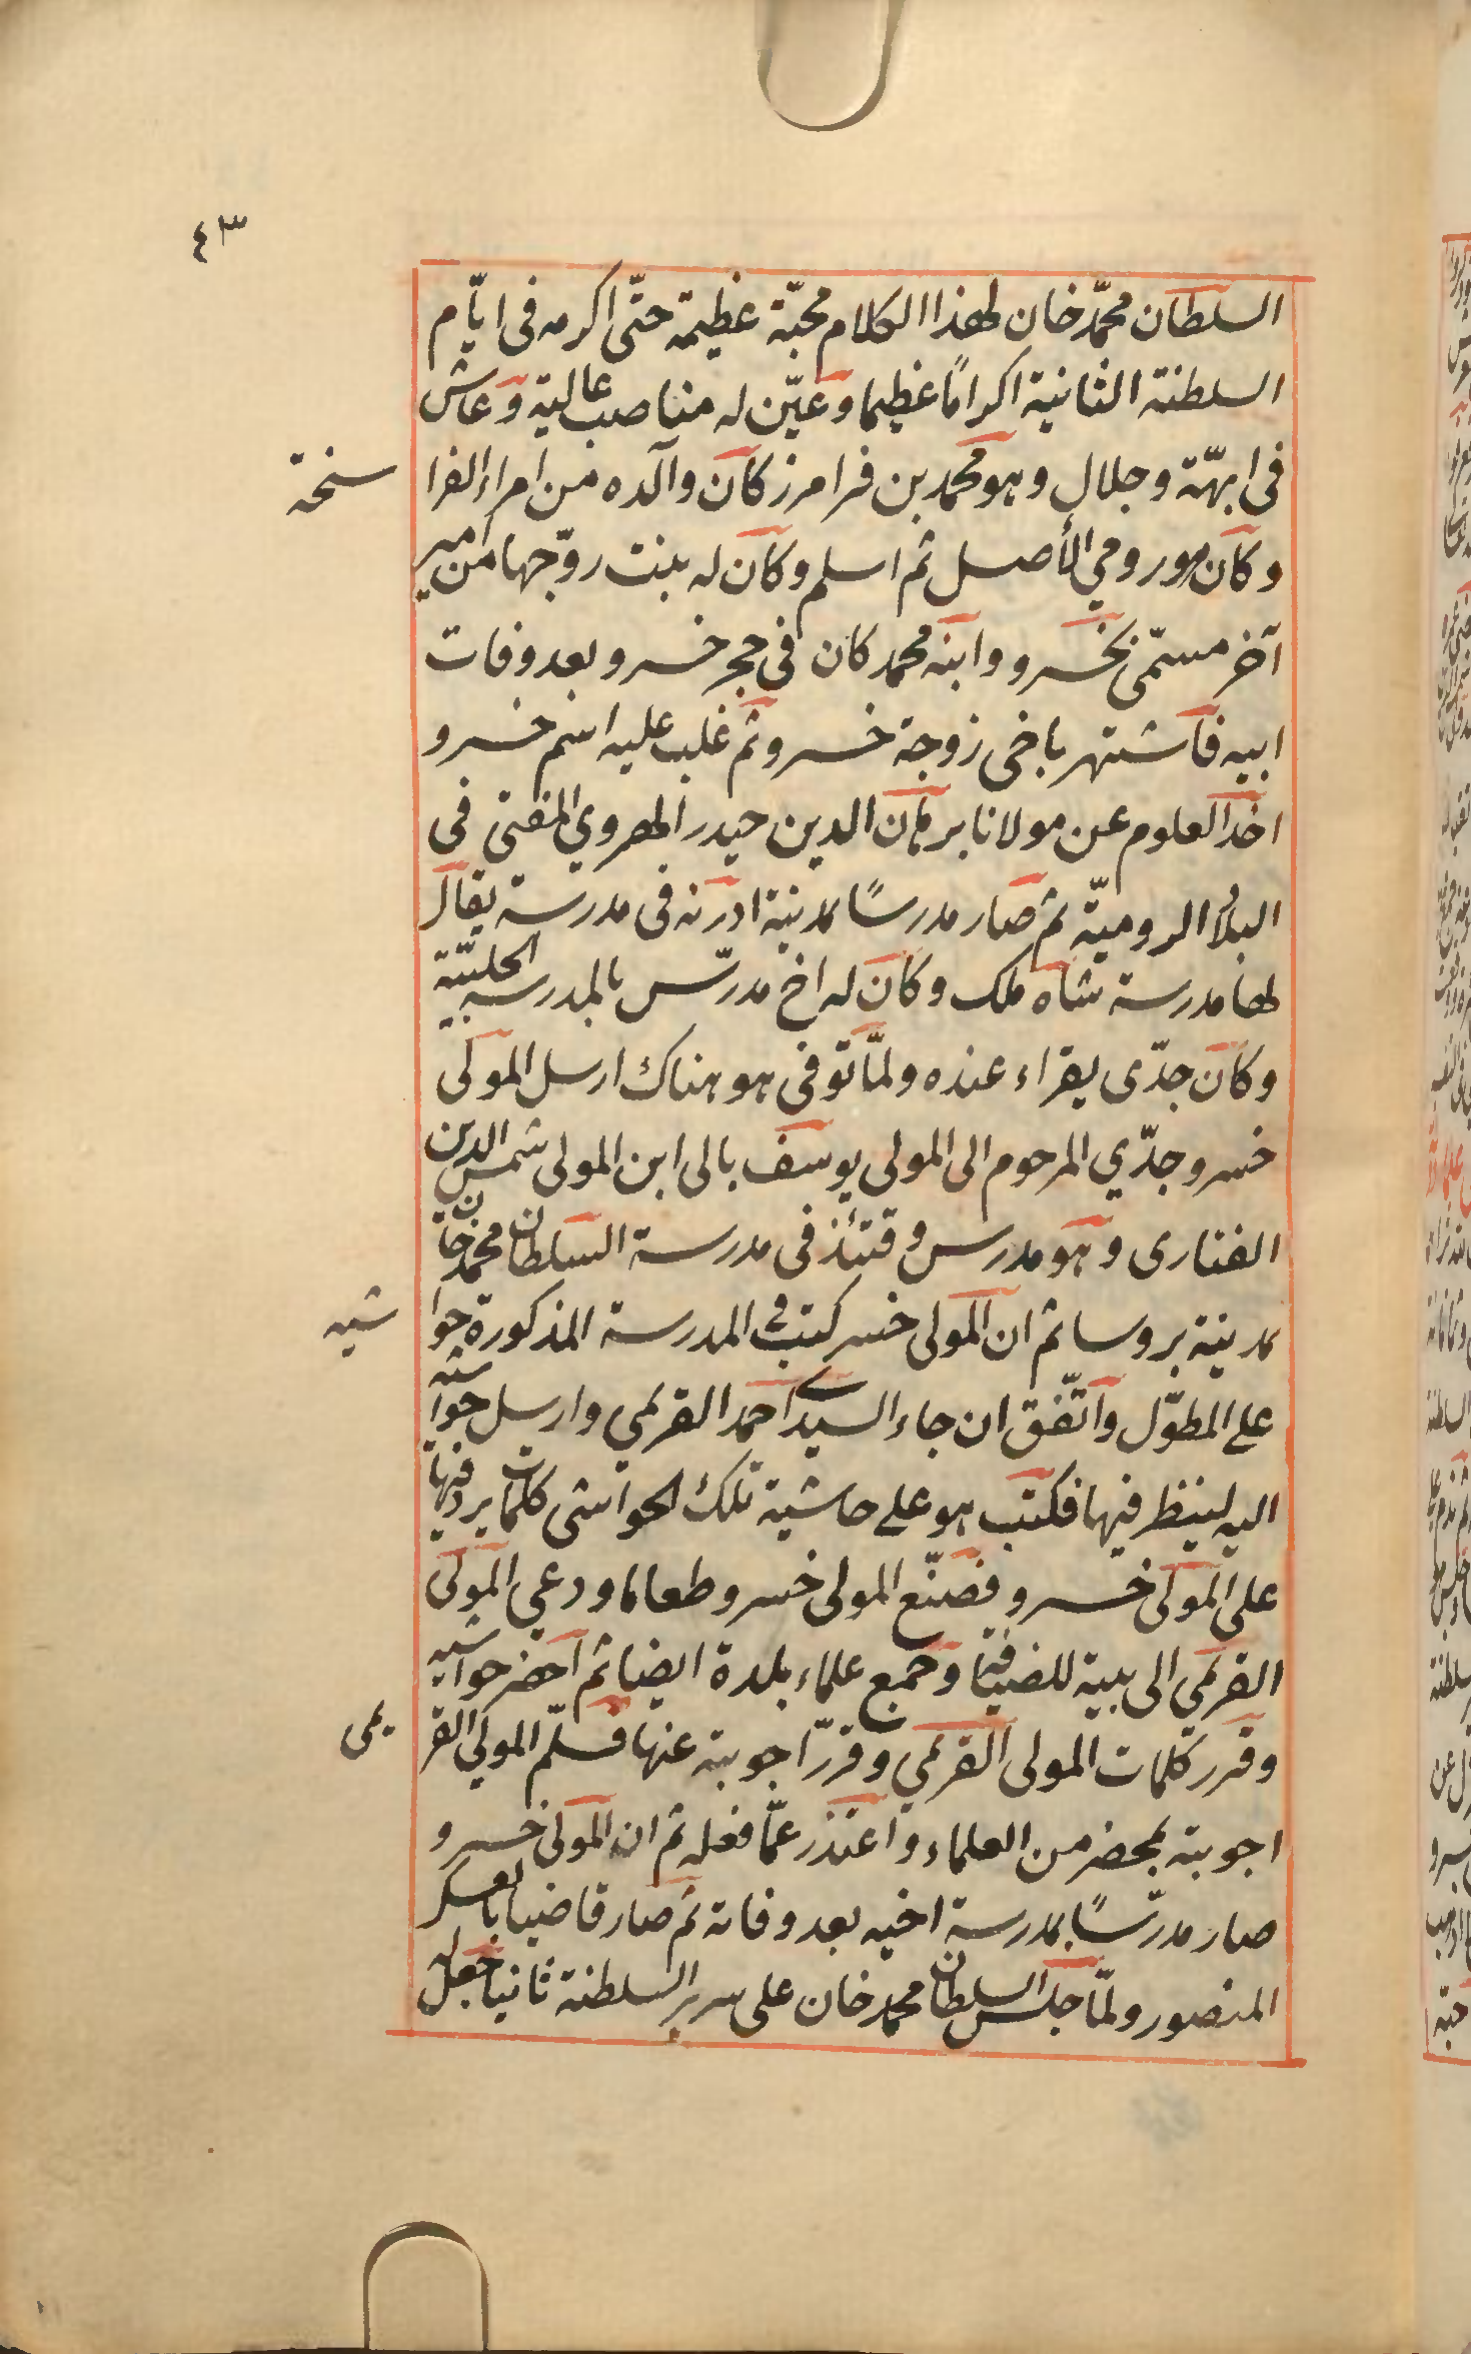 ٤٣
السلطان محمّد خان لهذا الكلام محبّة عظيمة حتّى اكرمه فى ايّام
السلطنة الثانية اكرامًا عظيما وعيّن له مناصب عالية وعاش
فى ابهّة وجلال وهو محمد بن فرامرز كان والده من امراء الفرا
سخة
وكان هو رومي الأصل ثم اسلم وكان له بنت زوّجها من امير
آخر مسمّى بخسرو وابنه محمد كان فى حجر خسرو بعد وفات
ابيه فاشتهر باخى زوجة خسرو ثم غلب عليه اسم خسرو
اخذ العلوم عن مولانا برهان الدين حيدر الهروي المفتى فى
البلاد الروميّة ثم صار مدرسًا بمدينة ادرنه فى مدرسة يقال
لها مدرسة شاه ملك وكان له اخ مدرّس بالمدرسه الحلبيّة
وكان جدّى يقراء عنده ولمّا توفى هو هناك ارسل المولى
خسرو جدّي المرحوم الى المولى يوسف بالى ابن المولى شمس الدين
الفنارى وهو مدرس وقتئذ فى مدرسة السلطان محمد خان
بمدينة بروسا ثم ان المولى خسر كتب فى المدرسة المذكورة حوا
شيه
على المطوّل واتّفق ان جاء السيد احمد القريمي وارسل حواشيه
اليه لينظر فيها فكتب هو على حاشية تلك الحواشى كلمات يرد فيها
على المولى خسرو فصنّع المولى خسرو طعاما ودعي المولى
القريمي الى بيته للضيافة وجمع علماء بلدة ايضا ثم احضر حواشيه
وقرر كلمات المولى القريمي وقرّر اجوبته عنها فسلّم المولى القر
يمى
اجوبته بمحضر من العلماء واعتذر عمّا فعله ثم ان المولى خسرو
صار مدرّسًا بمدرسة اخيه بعد وفاته ثم صار قاضيا بالعسكر
المنصور ولمّا جلس السلطان محمد خان على سرير السلطنة ثانيا جعل له